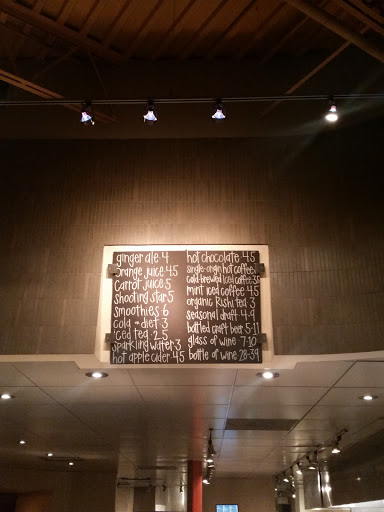 ginger ale 4
orange juice 4.5
carrot juice 5
shooting star 5
smoothies 6
cola diet 3
iced tea 2.5
sparkling water 3
hot apple cider 4.5
hot chocolate 4.5
single-origin hot coffee
cold-brewed iced coffee 3.5
mint iced coffee 4.5
organic Rishi tea 3
seasonal draft 4.4
bottled craft beer 5-11
glass of wine 7-10
bottle of wine 28-39